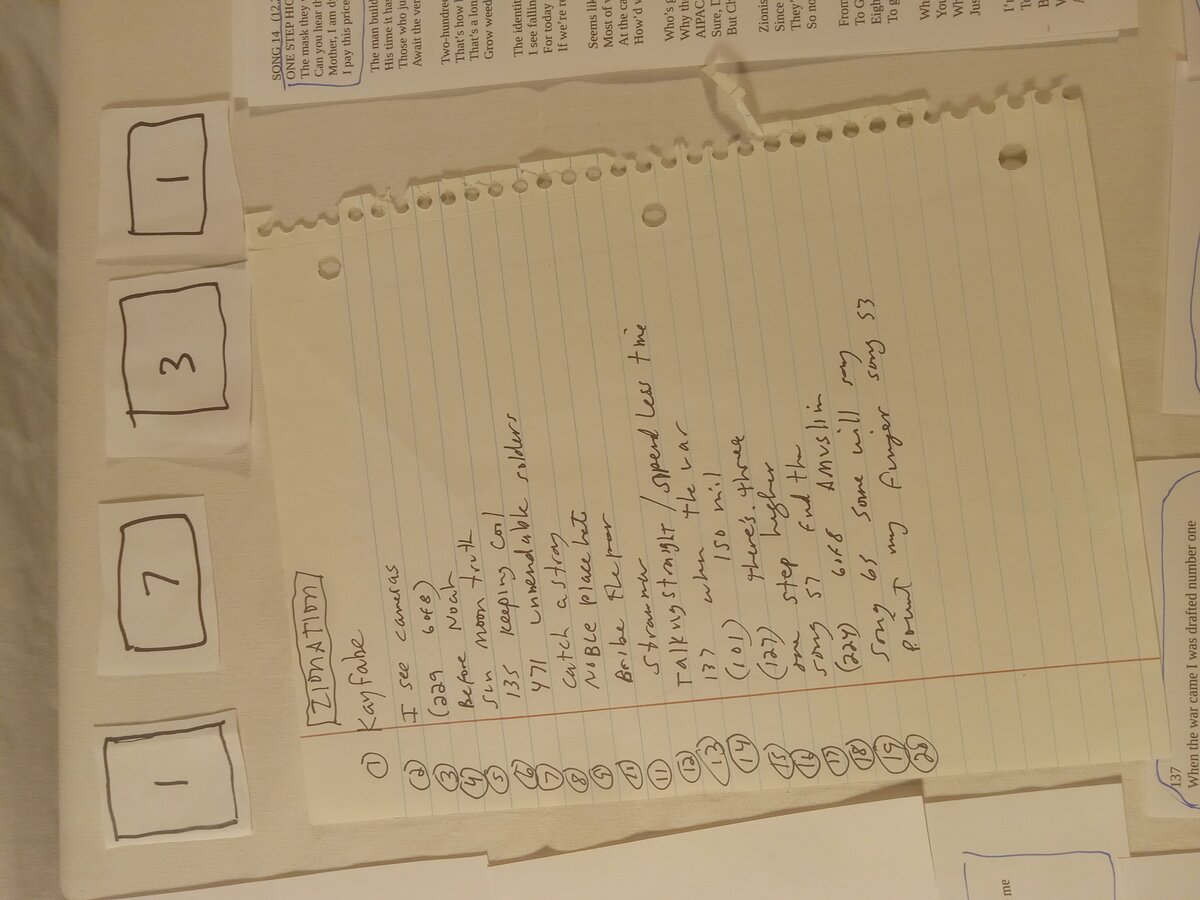 1 7 3 1
ZIONATION
① Kayfabe
② I see cameras
③ (229 6of8)
④ Before Noah
⑤ Sun moon truth
⑥ 135 keeping cool
⑦ 471 unmendable solders
⑧ Catch a stray
⑨ NOBLE place hate
⑩ Bribe the poor
⑪ Strawman
⑫ Talkng straight / spend less time
⑬ 137 when the war
⑭ (101) 150 mil
⑮ (127) there's three
⑯ one step higher
⑰ song 57 find the
⑱ (224) 6of8 AMuslim
⑲ Song 65 some will say
⑳ Point my finger song 53
SONG 14 (12
ONE STEP HIG
The mask they
Can you hear th
Mother, I am dy
I pay this price
The man build
His time it has
Those who ju
Await the ver
Two-hundred
That's how
That's a lon
Grow weed
The identit
I see fallin
For today
If we're r
Seems lik
Most of
At the ca
How'd
Who's
Why th
AIPAC
Sure, D
But Ch
Zionis
Since
They'
So no
From
To G
Eigh
To g
Wh
You
Wh
Jus
I'm
To
B
me
137
When the war came I was drafted number one